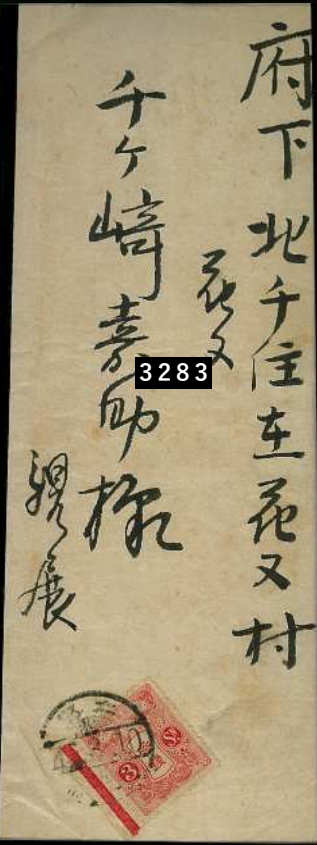 府下北千住在花又村
花又
千ヶ崎嘉助様
親展
3283